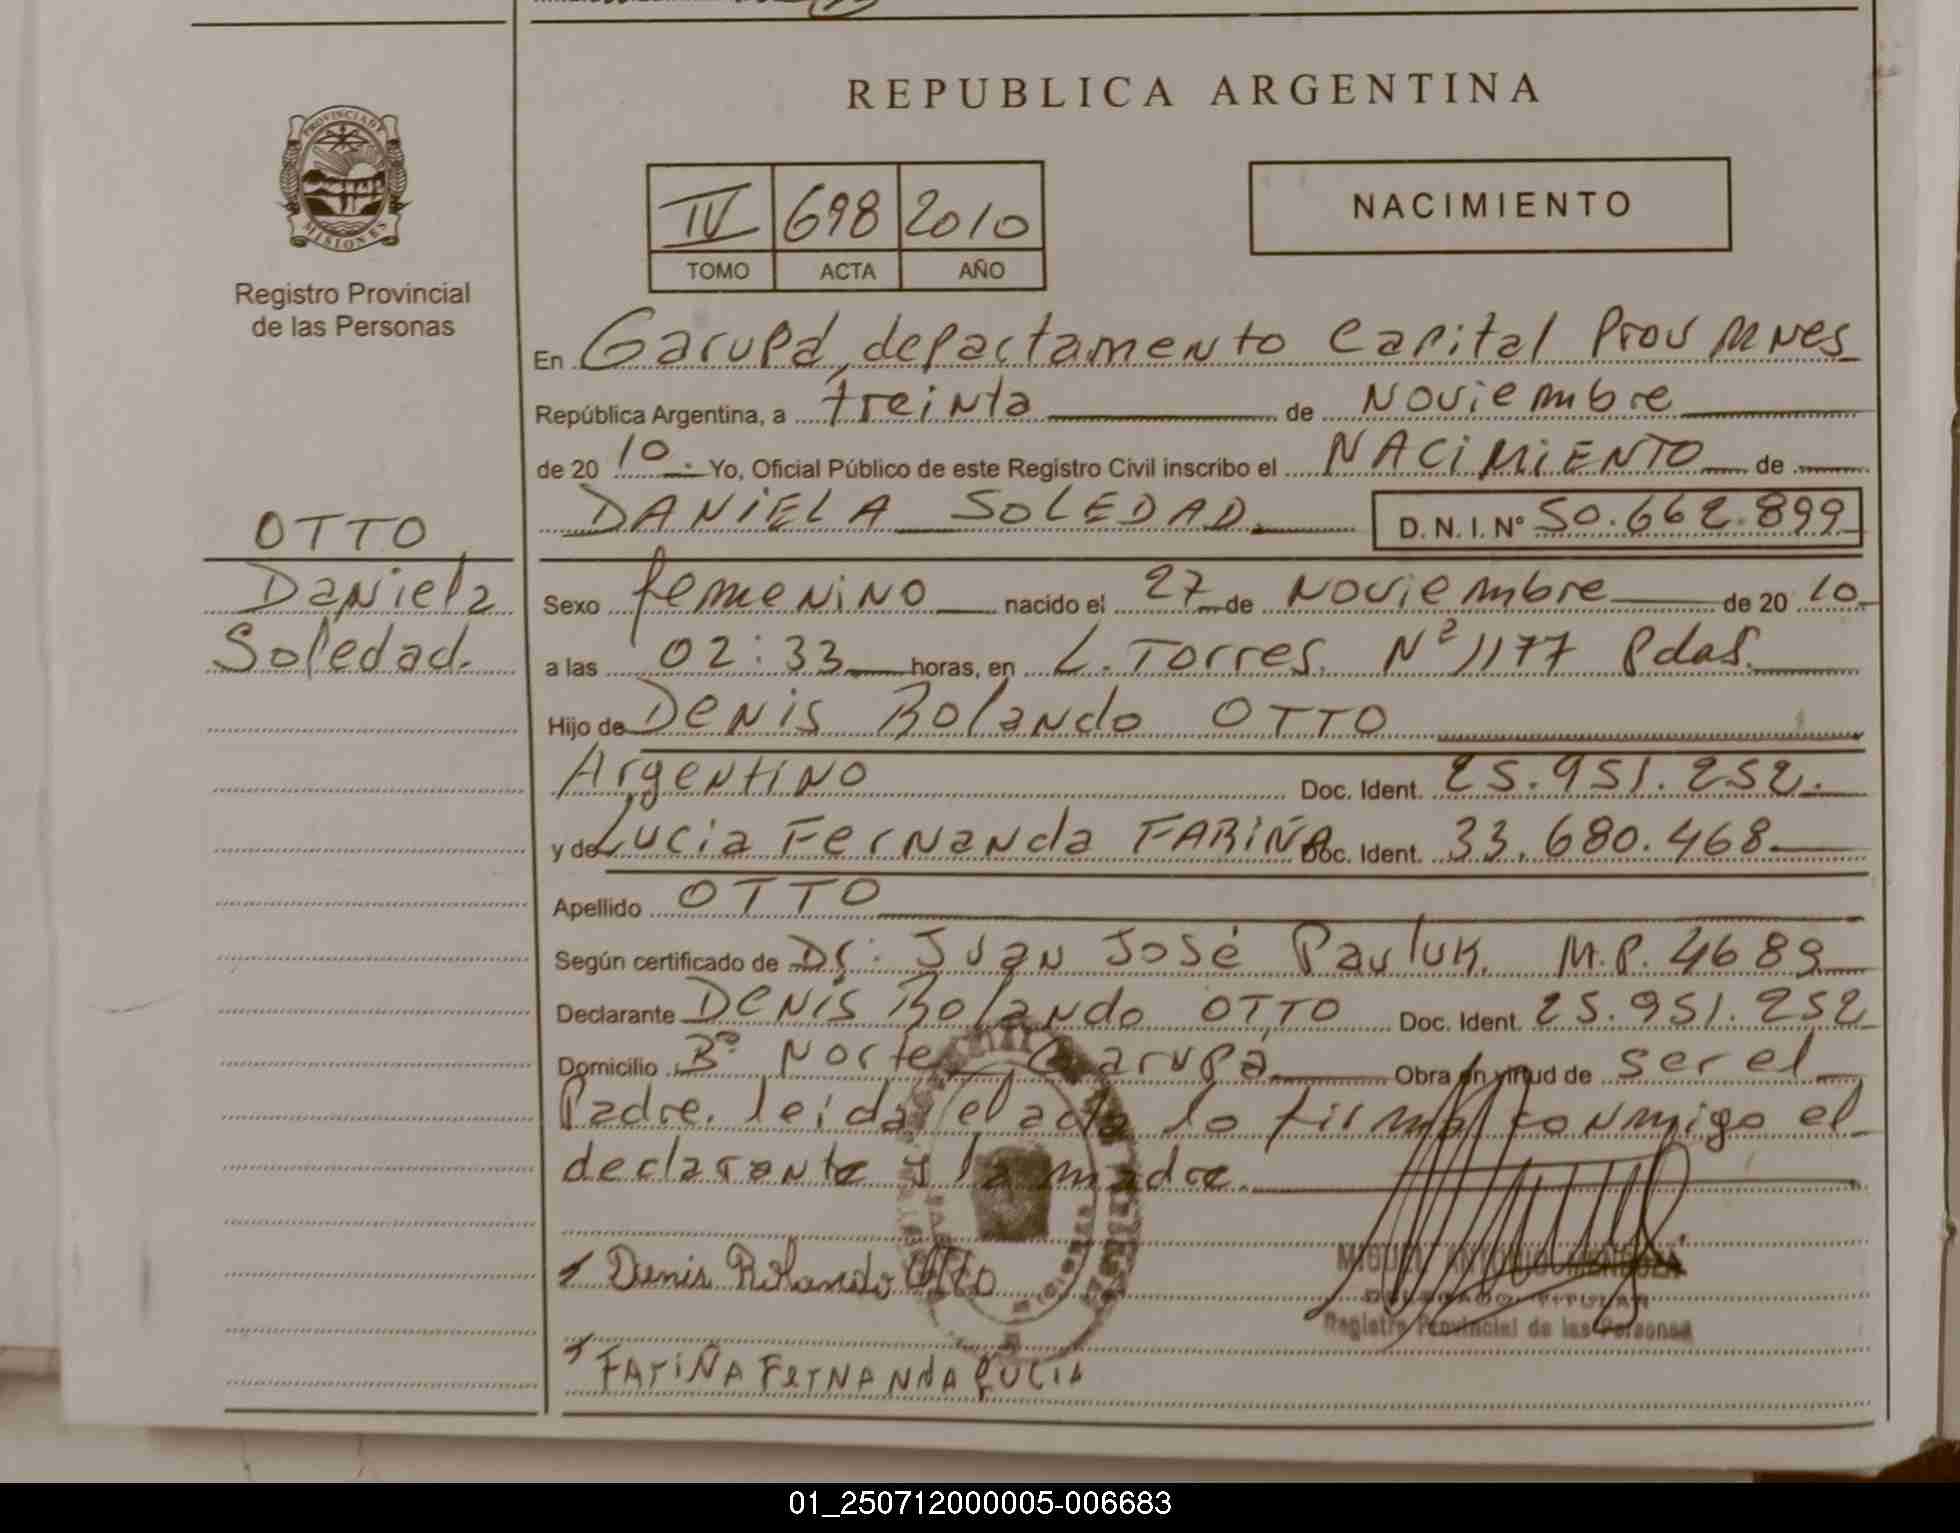 REPUBLICA ARGENTINA
PROVINCIA DE
MISIONES
Registro Provincial
de las Personas
IV 698 2010
TOMO ACTA AÑO
NACIMIENTO
En Garupá, departamento Capital Prov Mnes
República Argentina, a treinta de Noviembre
de 20 10. Yo, Oficial Público de este Registro Civil inscribo el NACIMIENTO de
DANIELA SOLEDAD D. N. I. Nº 50.662.899
OTTO
Daniela
Soledad.
Sexo femenino nacido el 27 de Noviembre de 20 10
a las 02:33 horas, en L. Torres. Nº 1177 Pdas.
Hijo de Denis Rolando OTTO
Argentino Doc. Ident. 25.951.252.
y de Lucia Fernanda FARIÑA Doc. Ident. 33.680.468
Apellido OTTO
Según certificado de Dr: Juan José Pauluk. M.P. 4689
Declarante Denis Rolando OTTO Doc. Ident. 25.951.252
Domicilio Bº Norte Garupá Obra en virtud de ser el
Padre. leida el acta lo firma conmigo el
declarante y la madre.
Denis Rolando Otto
MIGUEL ANTONIO MENDOZA
DELEGADO TITULAR
Registro Provincial de las Personas
FARIÑA FERNANDA LUCIA
01_250712000005-006683